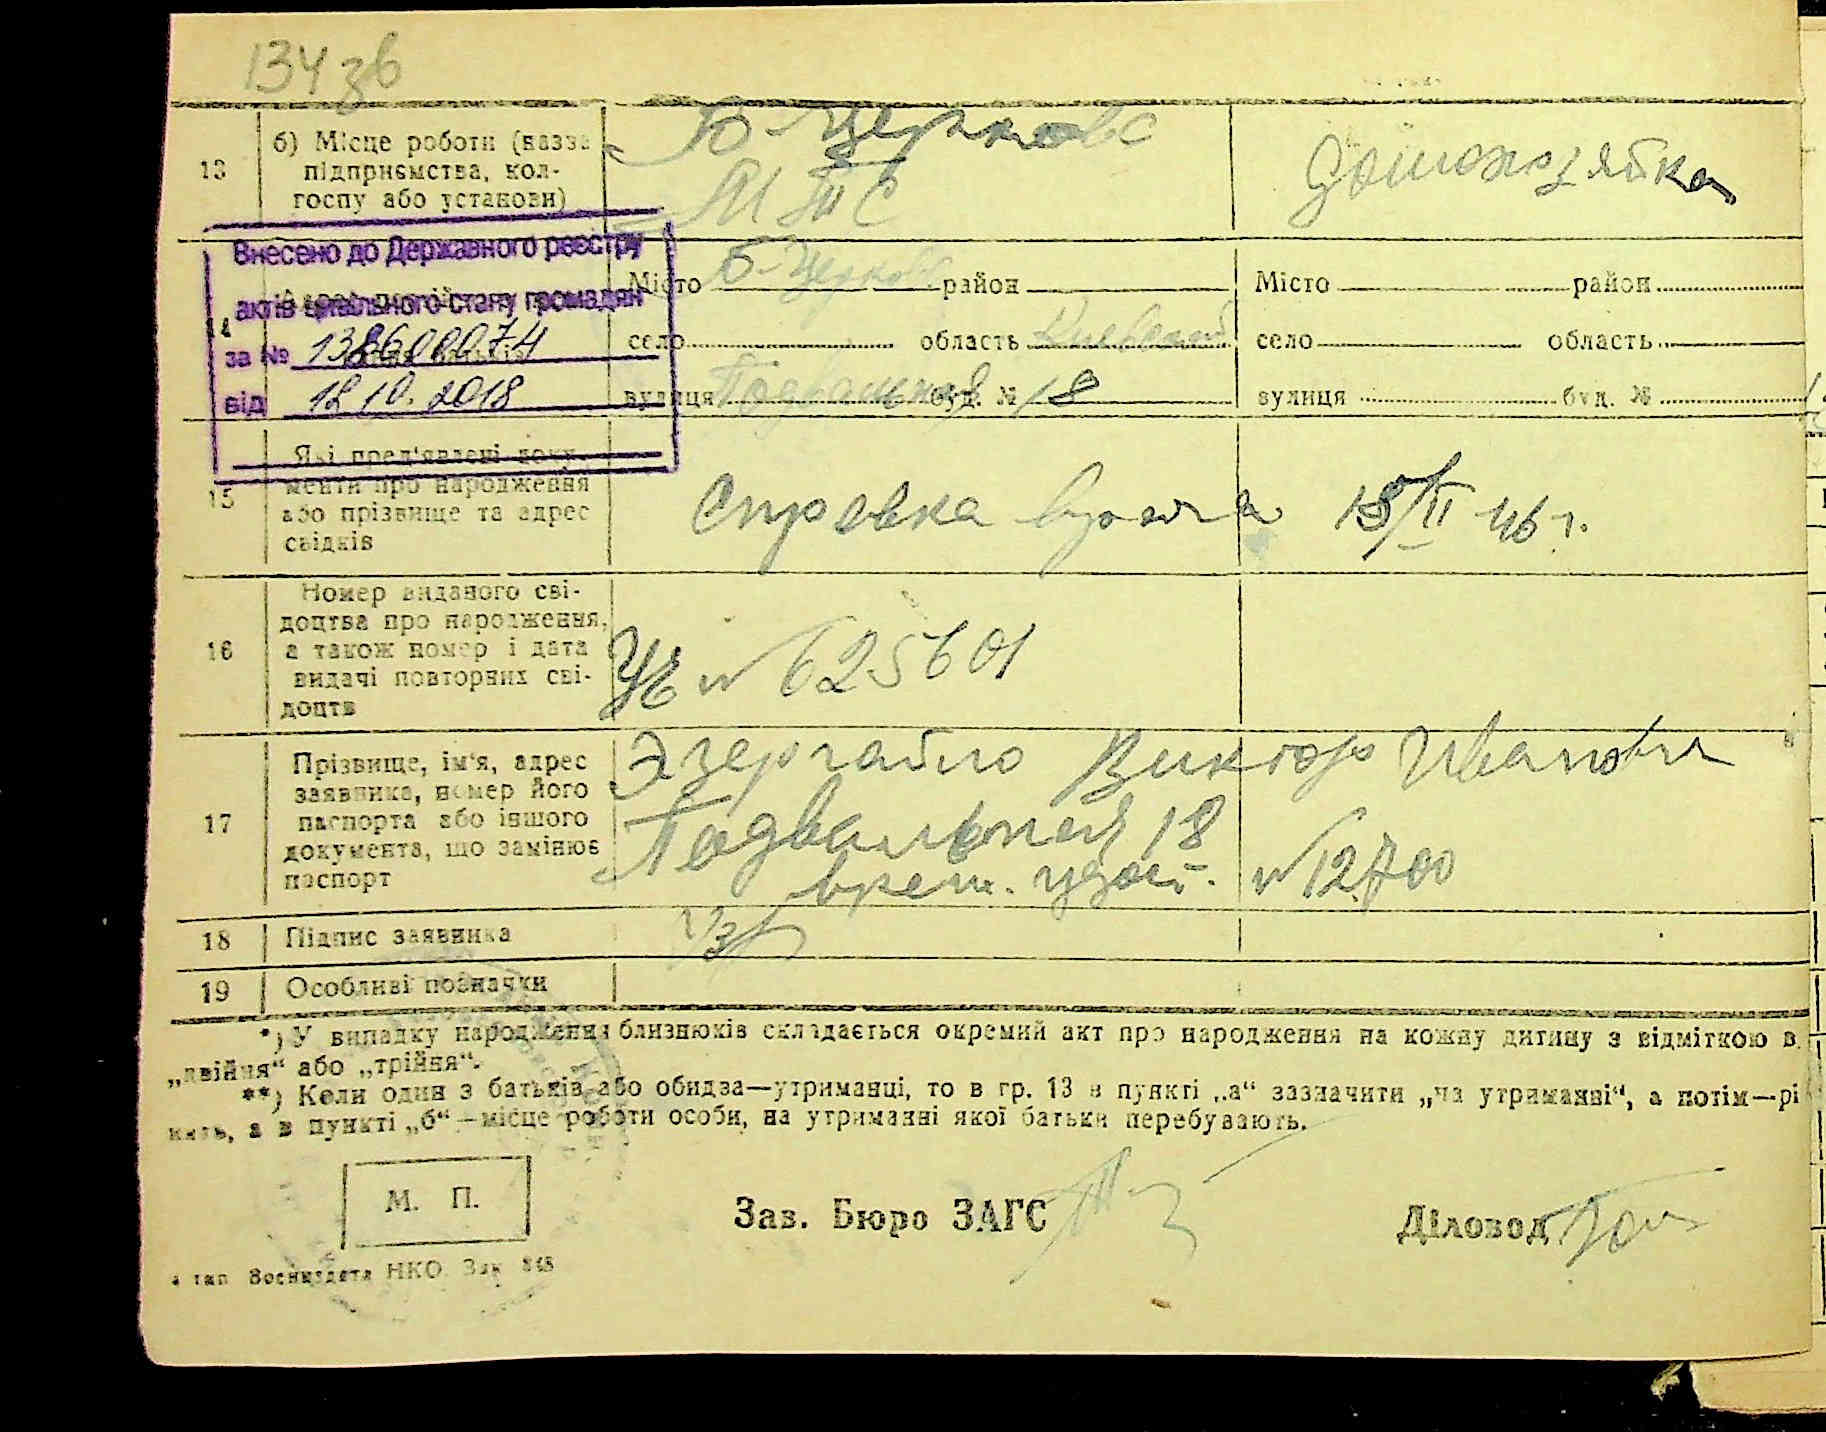 134 зв
13
б) Місце роботи (назва підприємства, колгоспу або установи)
Б-Церковс
МТС
домохозяйка
Внесено до Державного реєстру
актів цивільного стану громадян
за №
від 12.10.2018
14
Місто Б-Церков район
село область Киевская
вулиця Подвальная буд. № 18
Місто район
село область
вулиця буд. №
15
Які пред'явлені документи про народження або прізвище та адрес свідків
Справка врача 18/II 46 г.
16
Номер виданого свідоцтва про народження, а також номер і дата видачі повторних свідоцтв
№ 625601
17
Прізвище, ім'я, адрес заявника, номер його паспорта або іншого документа, що замінює паспорт
Виктор Иванович
Подвальная 18
врем. удост. № 12700
18
Підпис заявника
19
Особливі позначки
*) У випадку народження близнюків складається окремий акт про народження на кожну дитину з відміткою в
„двійня“ або „трійня“.
**) Коли один з батьків або обидва—утриманці, то в гр. 13 в пункті „а“ зазначити „на утриманні“, а потім—рі
а в пункті „б“—місце роботи особи, на утриманні якої батьки перебувають.
М. П.
Зав. Бюро ЗАГС
Діловод
тип Воениздата НКО Зак